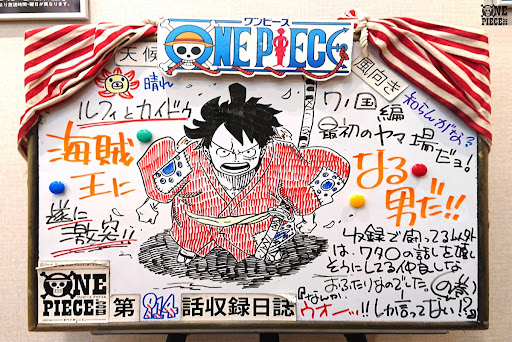 り放送時間・曜日が異なります。
ワンピース
ONE PIECE
ONE PIECE
天候
晴れ
風向き
知らんがな
ルフィとカイドウ
遂に
激突!!
海賊
王に
ワノ国編
最初のヤマ場だョ!
なる
男だ!!
収録で闘ってる以外
は、ワタ〇の話を
そうにしてる仲良しな
おふたりなのでした。
『なんか、
ウオーッ!!しか言ってない!?
ONE
PIECE
第914話収録日誌